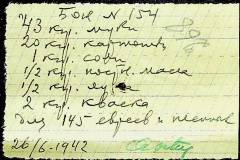 БОН N 154
43 кг. муки
20 кг. картошк
1 кг. соли
1/2 кг. постн. масла
1/2 кг. лука
2 кг. кваска
для 145 евреев и
26/6-1942